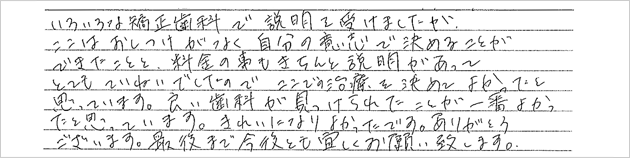 いろいろな矯正歯科で説明を受けましたが、
ここはおしつけがなく自分の意志で決めることが
できたことと、料金の事もきちんと説明があって
とてもていねいでしたので ここでの治療を決めて よかったと
思っています。良い歯科が見つけられたことが一番よかっ
たと思っています。きれいになりよかったです。ありがとう
ございます。最後まで今後とも宜しくお願い致します。